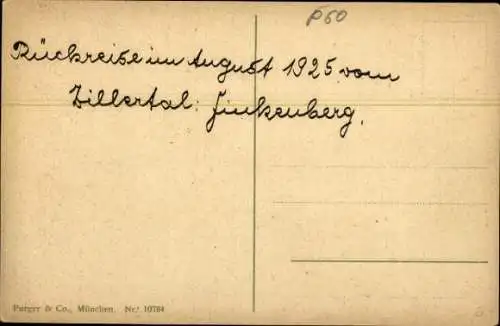 P60
Rückreise im August 1925 vom
Zillertal: Finkenberg.
Purger & Co., München. Nr. 10784